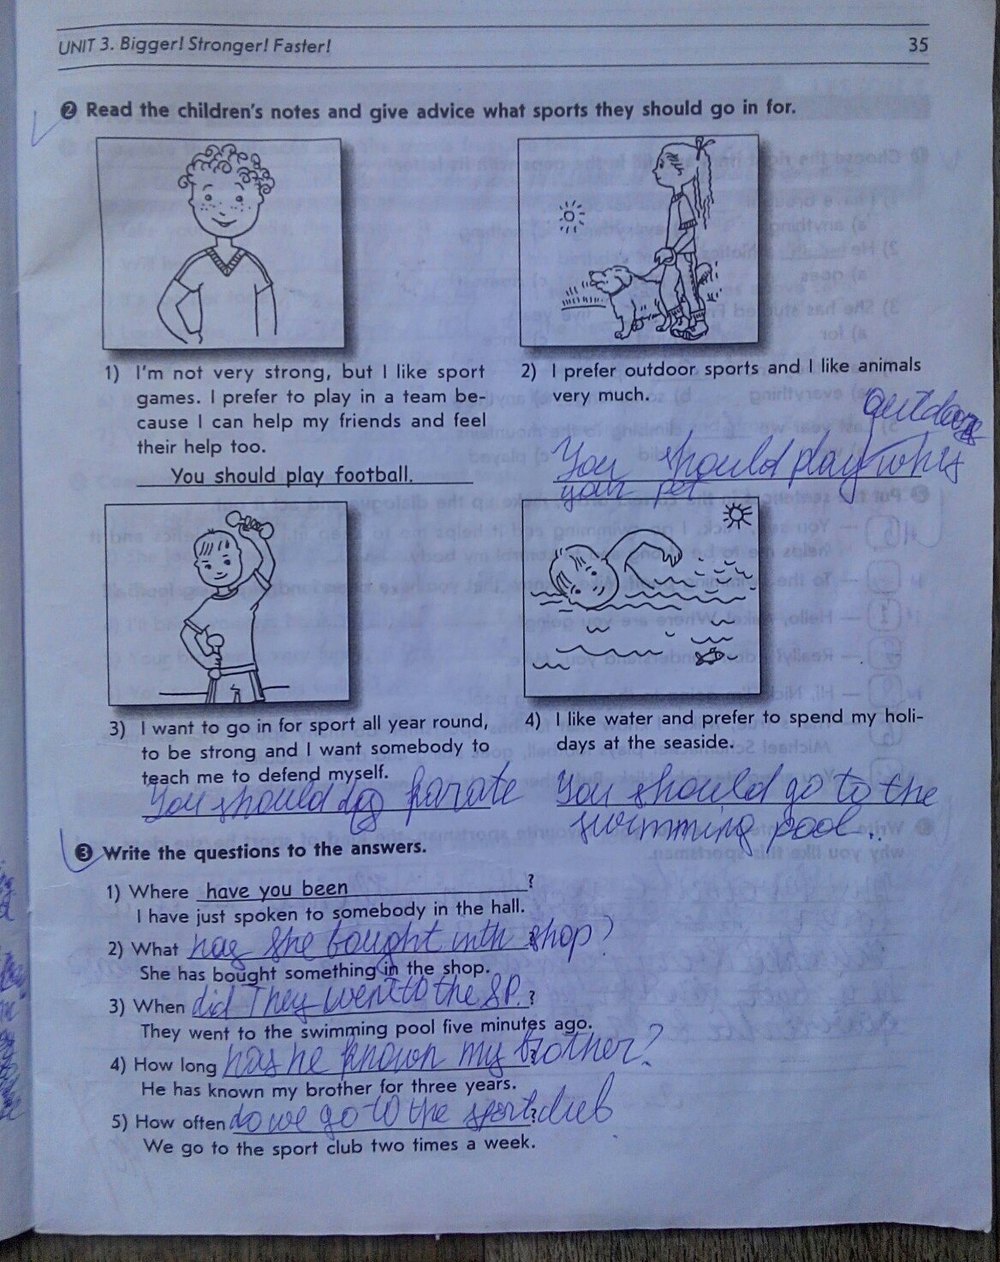 UNIT 3. Bigger! Stronger! Faster!
35
2 Read the children's notes and give advice what sports they should go in for.
1) I'm not very strong, but I like sport
games. I prefer to play in a team be-
cause I can help my friends and feel
their help too.
You should play football.
2) I prefer outdoor sports and I like animals
very much.
outdoors
You should play whis
your pet
3) I want to go in for sport all year round,
to be strong and I want somebody to
teach me to defend myself.
You should do karate
4) I like water and prefer to spend my holi-
days at the seaside.
You should go to the
swimming pool...
3 Write the questions to the answers.
1) Where have you been ?
I have just spoken to somebody in the hall.
2) What has she bought in th shop?
She has bought something in the shop.
3) When did They went to the S.P. ?
They went to the swimming pool five minutes ago.
4) How long has he known my brother?
He has known my brother for three years.
5) How often do we go to the sport club ?
We go to the sport club two times a week.